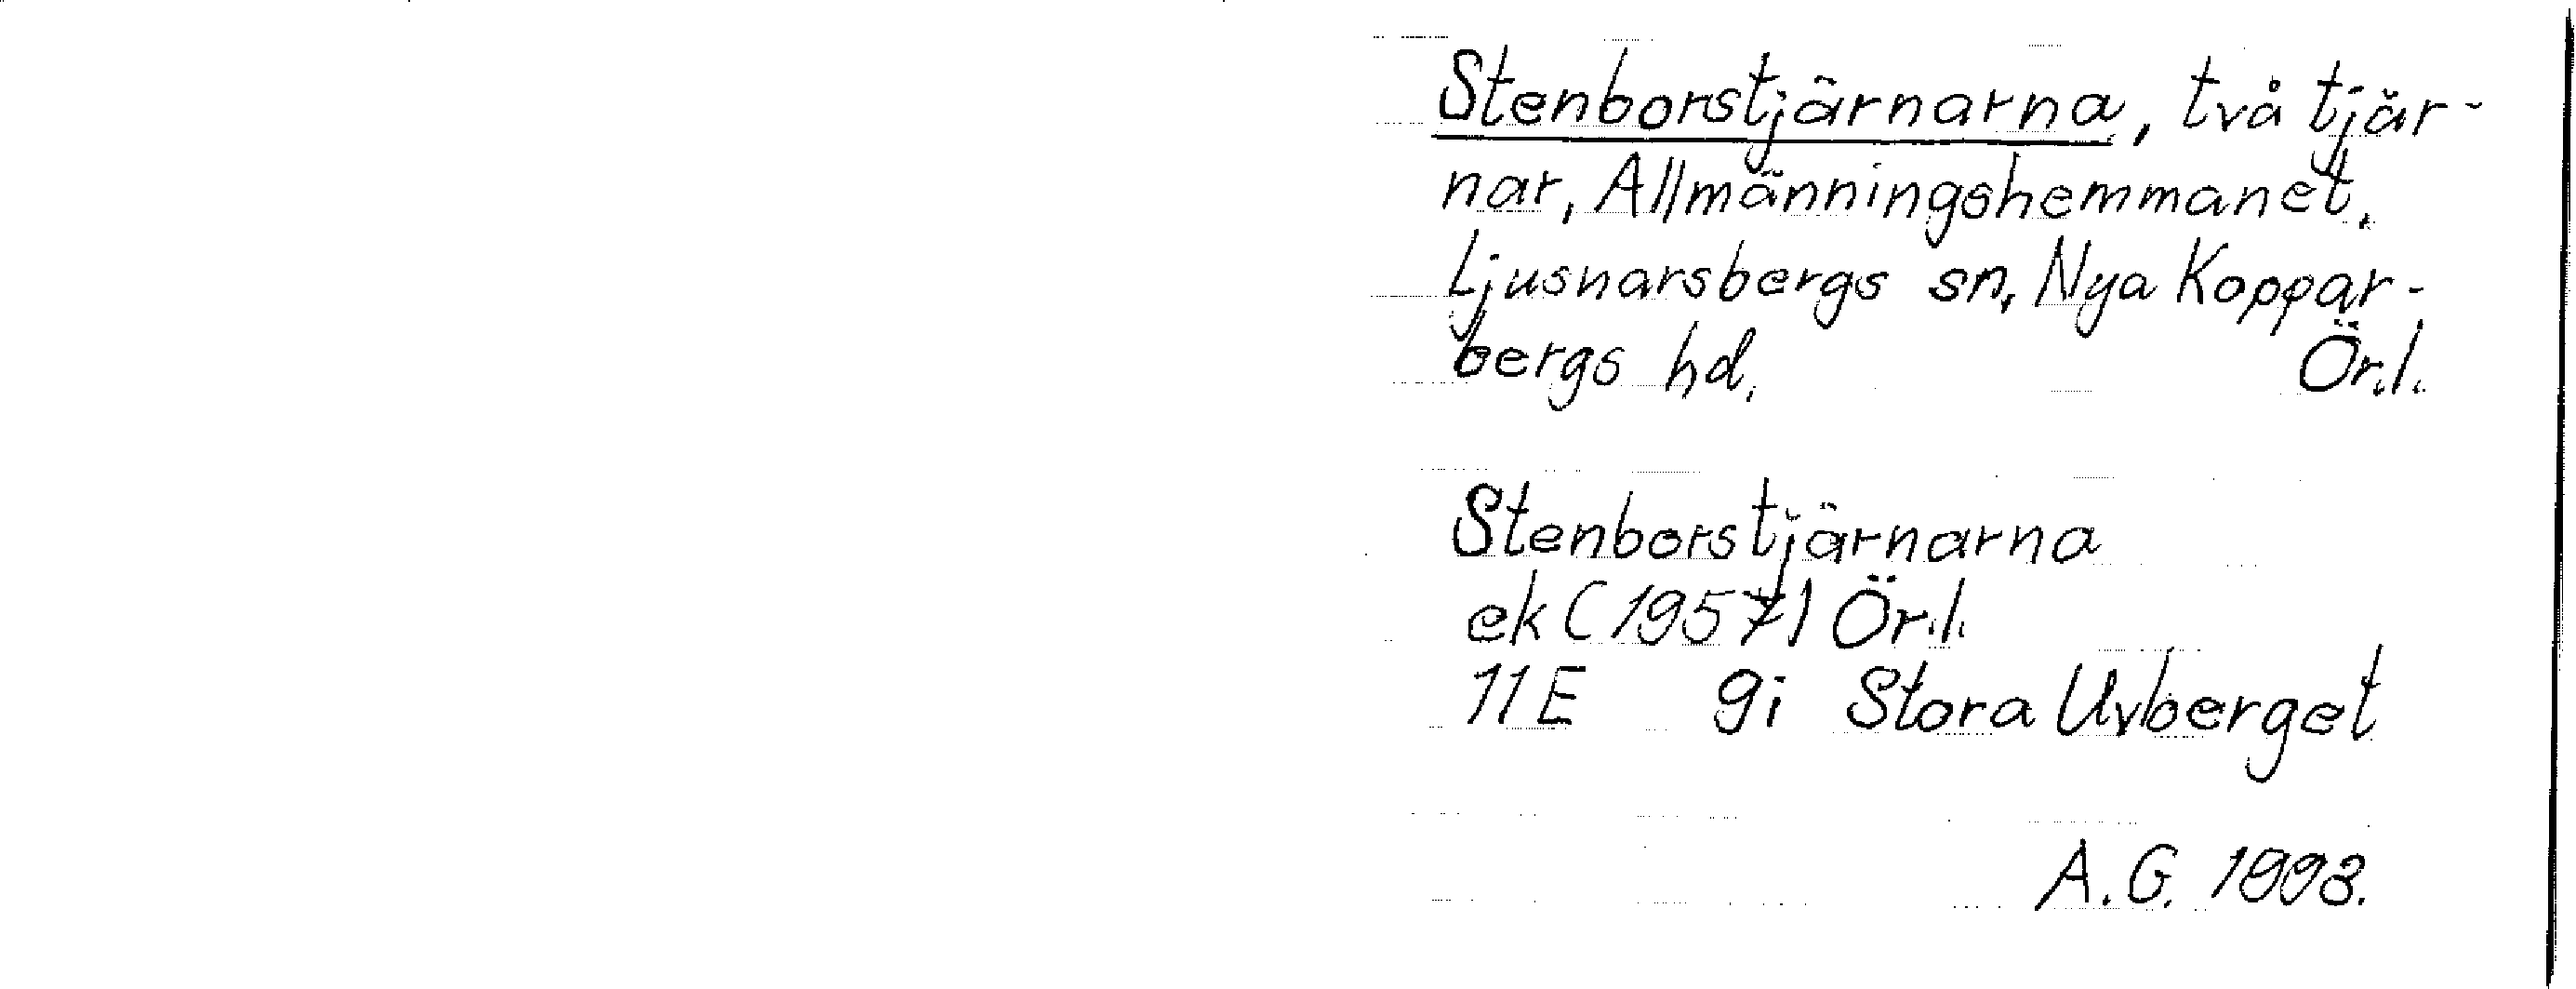 Stenborstjärnarna, två tjär-
nar, Allmänningshemmanet,
Ljusnarsbergs sn, Nya Koppar-
bergs hd. Ör.l.
Stenborstjärnarna
ek (1957) Ör.l.
11E 9i Stora Uvberget
A.G. 1993.